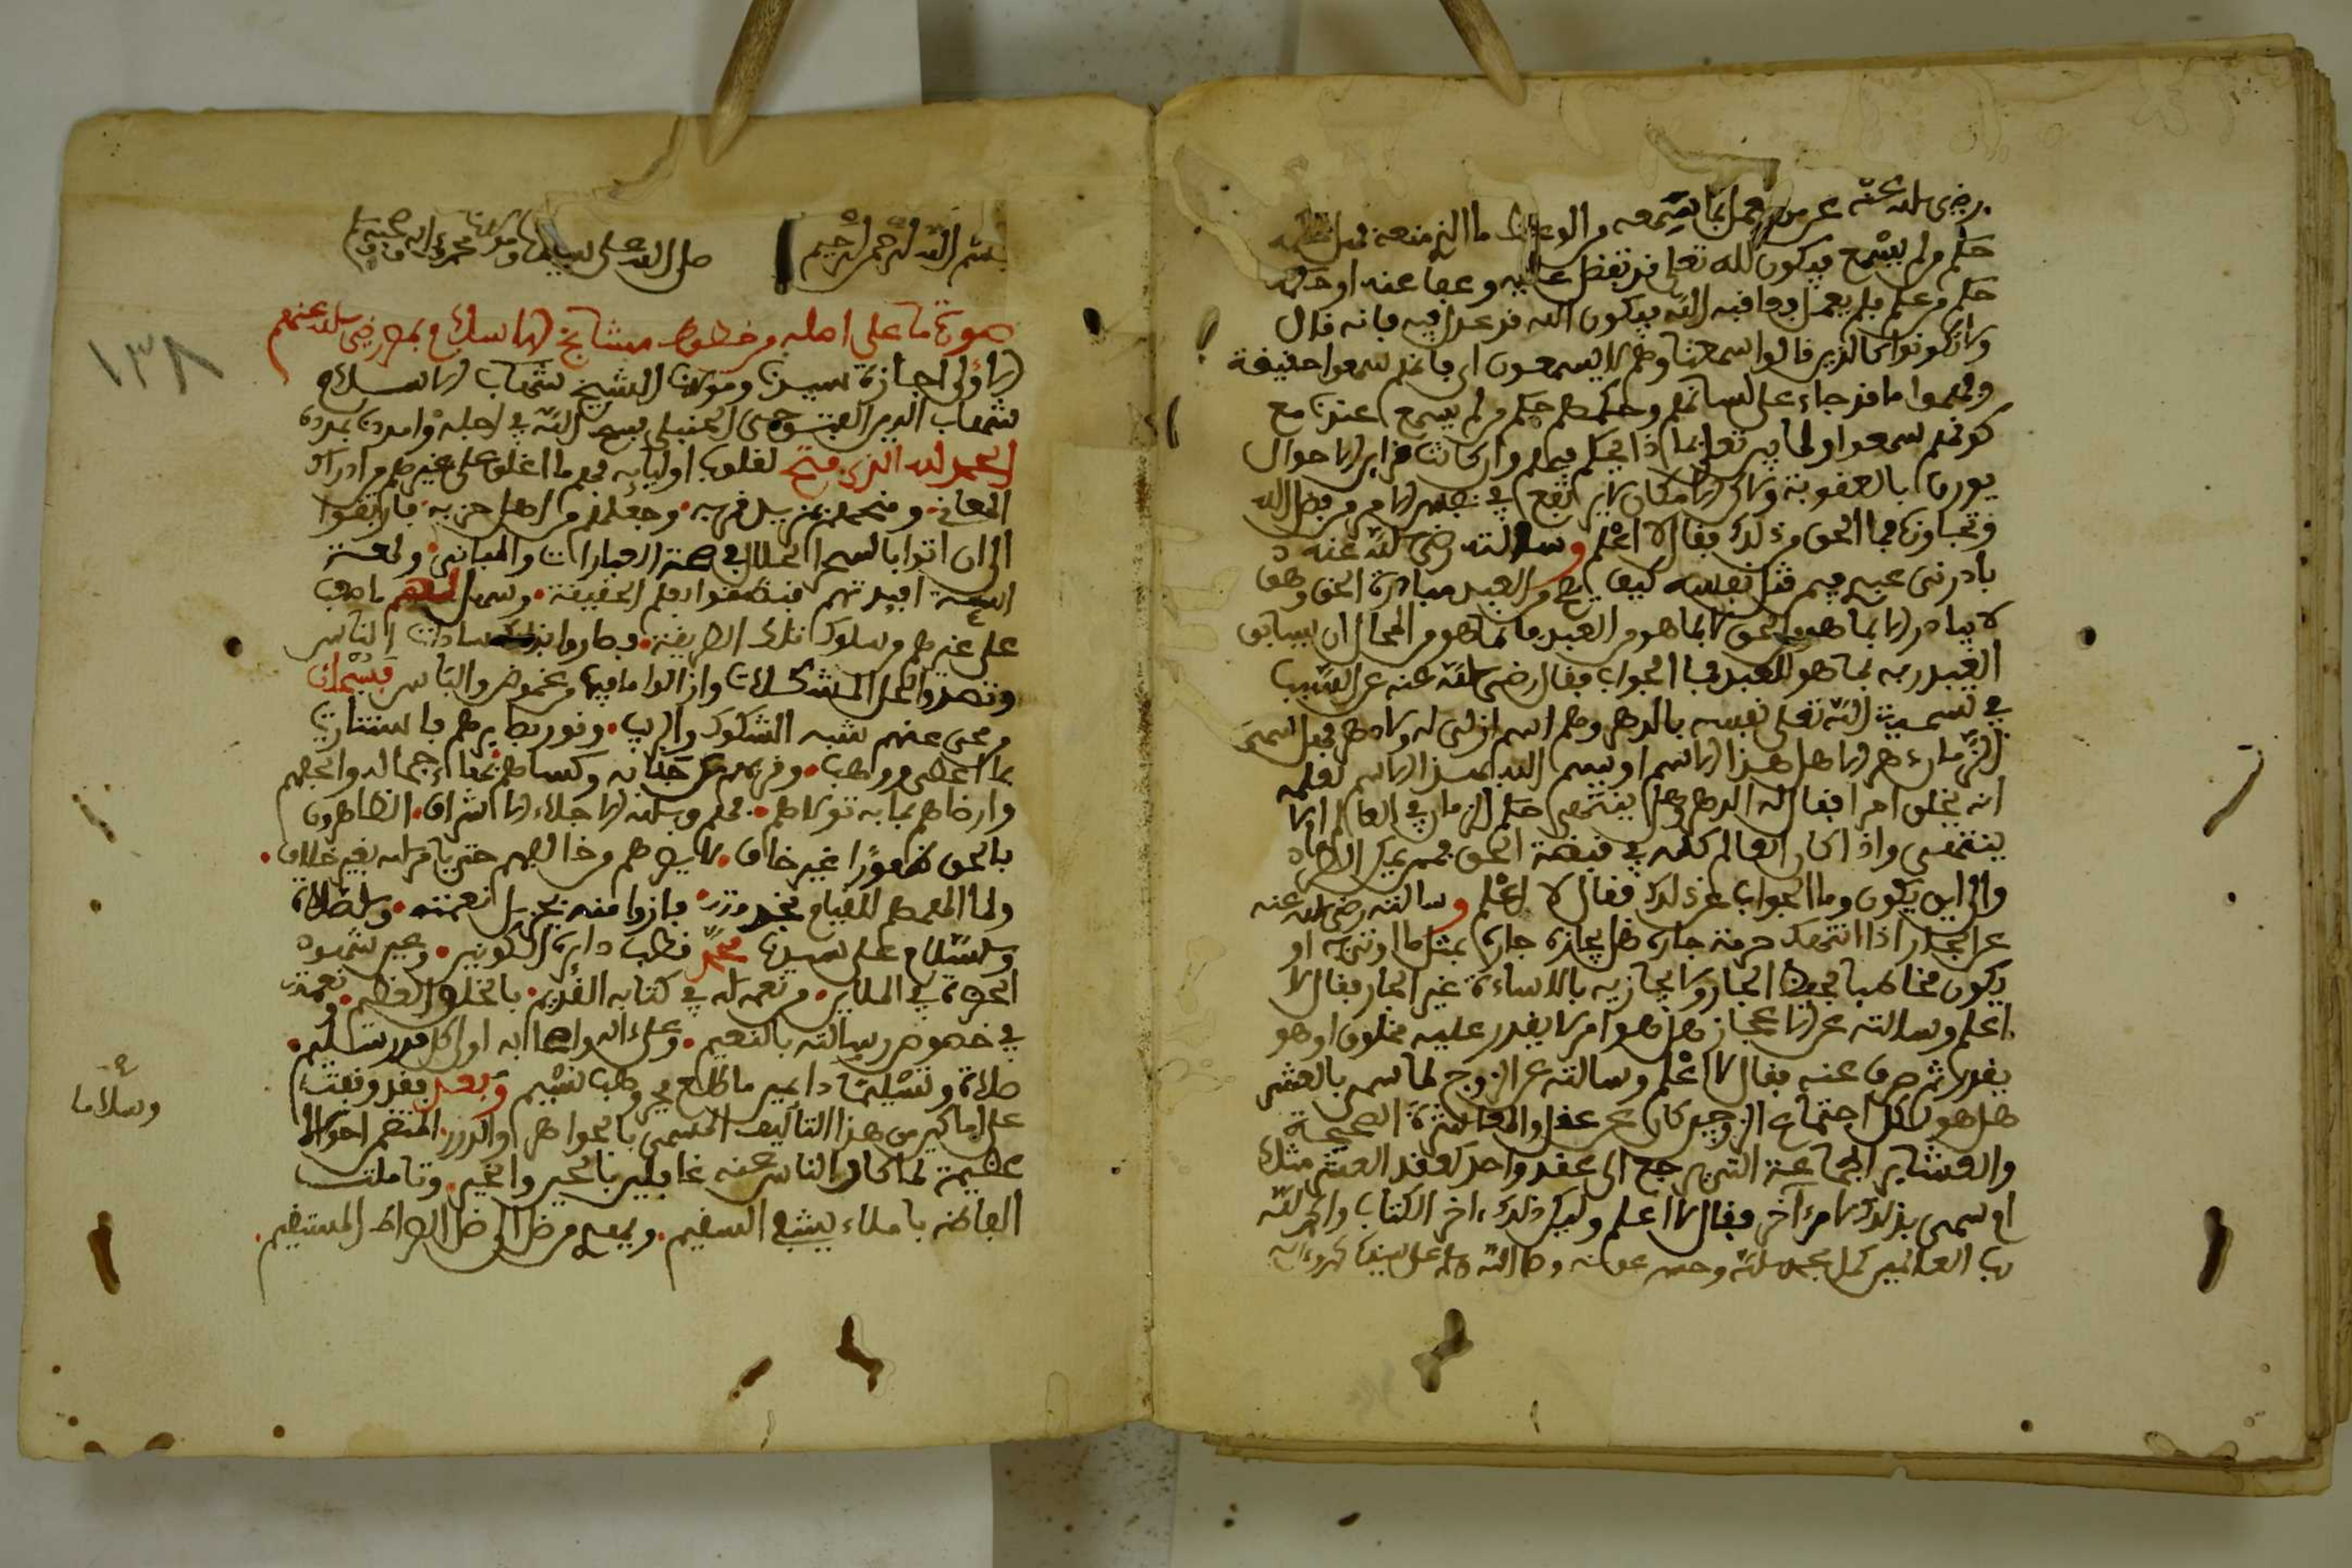 رضي الله عنه عن من يعمل بما سمعه من الوعظ ما الذي منعه
حكم من لم يسمع فيكون لله تعلى قد تفضل عليه وعفا عنه او حكمه
حكم من علم فلم يعمل فعاقبه الله فيكون الله قد عدل فيه فانه قال
ولا تكونوا كالذين قالوا سمعنا وهم لا يسمعون اى فانهم سمعوا حقيقة
وفهموا ما قد جاء على لسانهم وحكمهم حكم من لم يسمع عندنا مع
كونهم سمعوا وما يدرى تعلى بماذا يحكم فيهم وان كانت قراين الاحوال
تؤذن بالعقوبة ولاكن الامكان لا يرتفع في نفس الامر من فضل الله
وتجاوزه فما الحق من ذلك فقال لا اعلم وسالته رضي الله عنه
بادرنى عبدى فيمن قتل نفسه كيف يصح من العبد مبادرة الحق وهو
لا يبادر الا بما هو للحق لا بما هو للعبد فانما هو من المحال ان يسابق
العبد ربه بما هو للعبد فما الجواب فقال رضي الله عنه عن السبب
في تسمية الله تعلى نفسه بالدهر وهم اسم ازلى له ولا دهر فهل سمى
الزمان دهرا لاهل هذا الاسم او تسمى الله بهذا الاسم لعلمه
انه يخلق امرا يقال له الدهر وهل ينتهى حكم الزمان في العالم ام لا
ينقضى واذا كان العالم كله في قبضة الحق فمن يمكن الظهور
والى اين يكون وما الجواب عن ذلك فقال لا اعلم وسالته رضي الله عنه
عن الجار اذا انتهك حرمة جاره هل يجازه جاره بمثل ما اوتى به او
يكون مخاطبا بحفظ الجار ولا يجازيه بالاساءة غير الجار فقال لا
اعلم وسالته عن الاعجاز هل هو امر لا يقدر عليه مخلوق او هو
يقدر ثم صرف عنه فقال لا اعلم وسالته عن الزوج لما سمى بالعشير
هل هو لكل اجتماع الزوجين كان عن عقد والمعاشرة الصحبة
والعشاير الجماعة التى يرجع الى عقد واحد كعقد العشر مثلا
او سمى بذلك لامر آخر فقال لا اعلم وليكن ذلك اخر الكتاب والحمد لله
رب العالمين كمل بحمد الله وحسن عونه وصلى الله على سيدنا محمد وءاله
بسم الله الرحمن الرحيم صلى الله على سيدنا ومولانا محمد واله وصحبه
صورة ما على اصله من خطوط مشايخ الاسلام بمصر رضي الله عنهم
الاولى اجازة سيدنا ومولانا الشيخ شهاب الاسلام
شهاب الدين الفتوحى الحنبلى فسح الله في اجله وامدنا بمدده
الحمد لله الذى فتح لقلوب اوليايه فهم ما اغلق على غيرهم من ادراك
المعانى ومنحهم بمزيل قربه وجعلهم من اهل حزبه فارتقوا
الى ان اتوا بالسحر الحلال في صنة العبارات والمبانى ولمعت
افيدتهم فنطقوا بعلم الحقيقة وسهل لهم ما صعب
على غيرهم من سلوك تلك الطريقة وصاروا بذلك سادات الناس
وتصدوا لحل المشكلات وازالوا ما فيها من غموض والباس فسبحان
من محى عنهم شبه الشكوك والريب ونور بصايرهم فاستنارت
بما اعطى ووهب وقربهم من جنابه وكساهم بهاء جماله والجهم
وارضاهم بما به تولاهم فهم وبالله الاجلاء الاشراف الظاهرون
بالحق ظهورا غير خاف لا يضرهم من خالفهم حتى ياتى امر الله بغير خلاف
ولما الهمهم للقيام بخدمته فازوا منه بجزيل نعمته والصلاة
والسلام على سيدنا محمد قطب دايرة الكونين وعين شهود
الحضرة في الملاين من نعمه الله في كتابه القديم بالخلق العظيم ونعمة
في خصوص رسالته بالتعميم وعلى ءاله واصحابه اولى كل قدر سليم
صلاة وتسليما دايمين ما طلع فجر وهب نسيم وبعد فقد وقفت
على اماكن من هذا التاليف المسمى بالجواهر والدرر المتضمن احوالا
عظيمة لما كان الناس عنه غافلين بالخبر والخبر وتاملت
الفاظه فاملاء يشفى السقيم ويهدى من ضل الى الصراط المستقيم
وسلاما
١٣٨